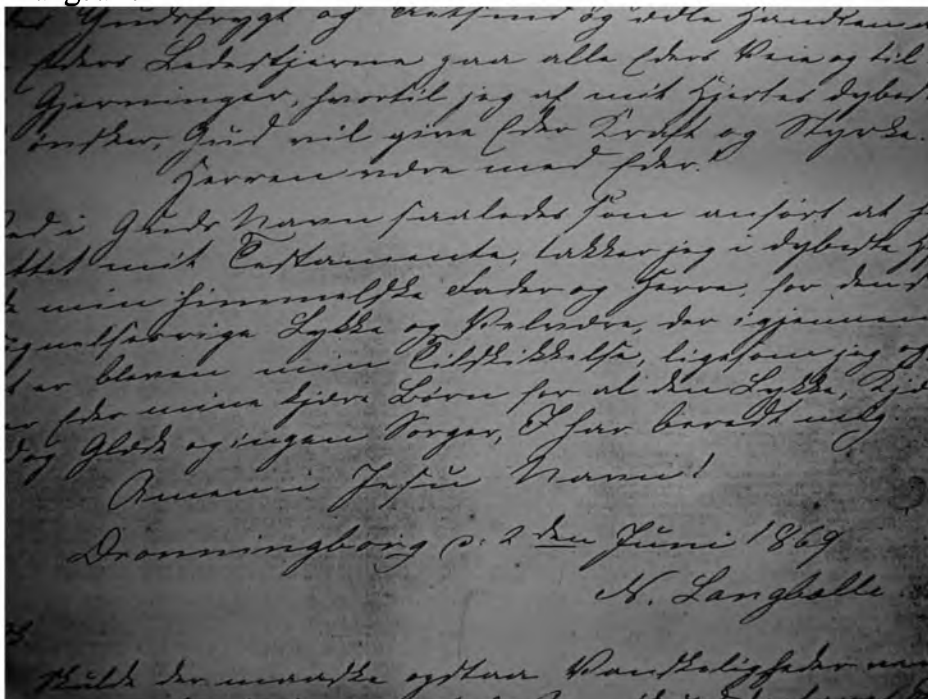 Gudsfrygt og Retsind og ædle Handlen
Eders Ledestjerne paa alle Eders Veie og til
Gjerninger, hvortil jeg af mit Hjertes dybeste
ønsker, Gud vil give Eder Kraft og Styrke.
Herren være med Eder!
i Guds Navn saaledes som anført at
mit Testamente, takker jeg i dybeste
min himmelske Fader og Herre, for den
Lykke og Velvære, der igjennem
er bleven min Tilskikkelse, ligesom jeg og
Eder mine kjære Børn for al den Lykke,
og Glæde og ingen Sorger, I har beredt mig.
Amen i Jesu Navn!
Dronningborg d: 2 den Juni 1869
N. Langballe
Skulde der maaske opstaa Vanskeligheder